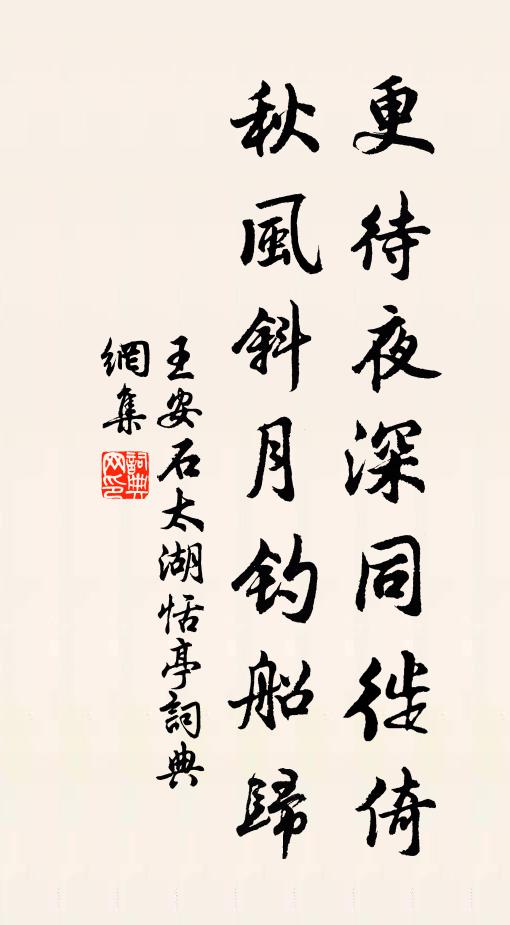 更待夜深同徙倚
秋風斜月釣船歸
王安石太湖恬亭詞典
網集
詞典網印